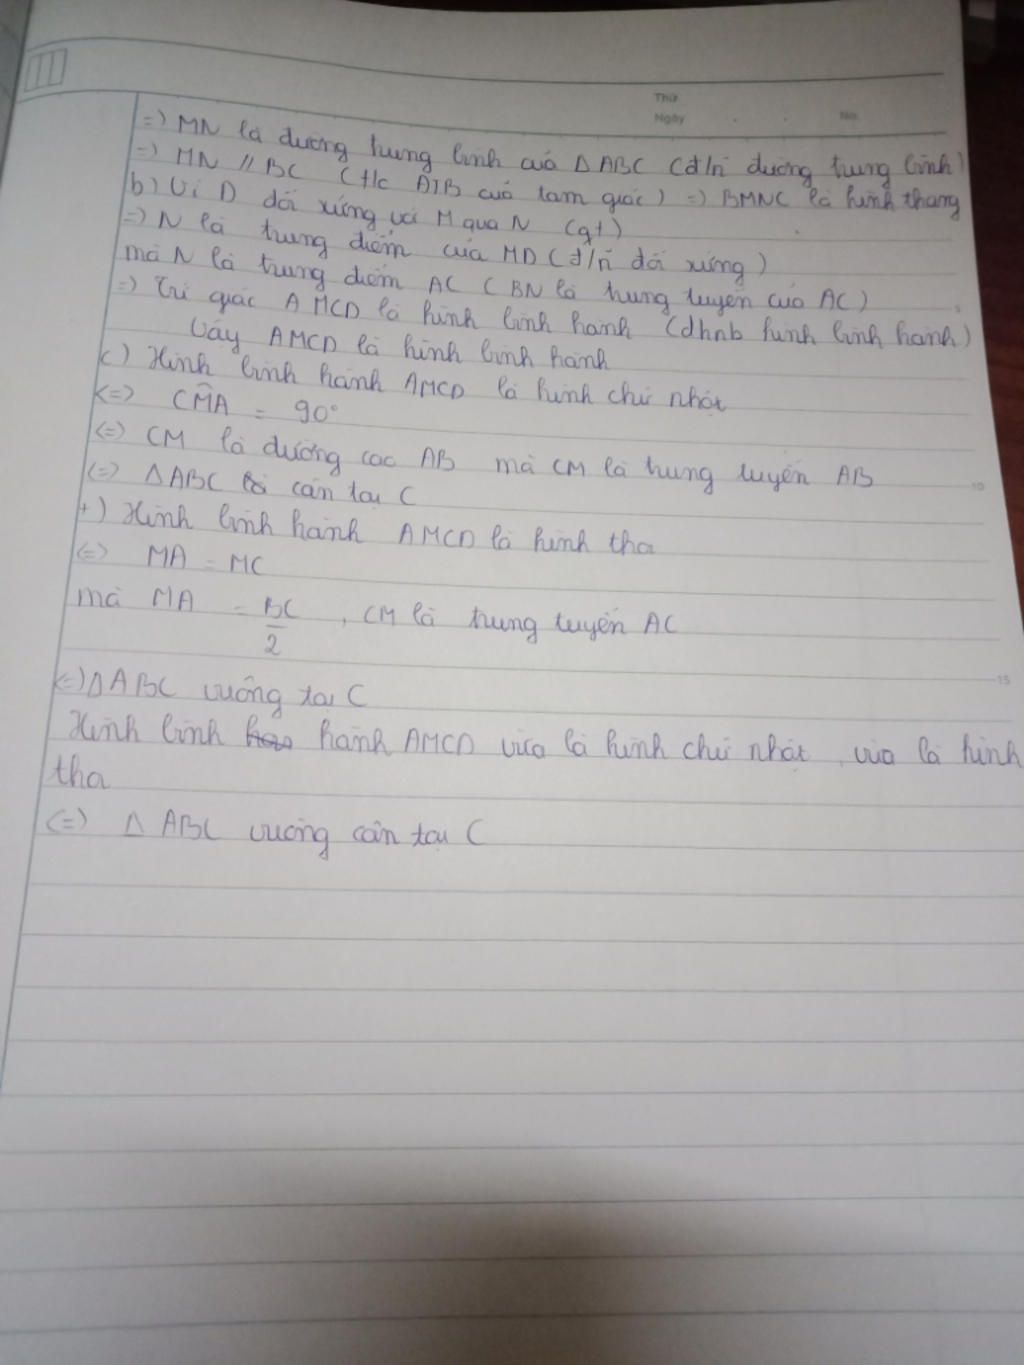 Thứ
Ngày . . No.
=) MN là đường trung bình của Δ ABC (đ/n đường trung bình)
=) MN // BC (t/c ĐTB của tam giác) =) BMNC là hình thang
b) Vì D đối xứng với M qua N (gt)
=) N là trung điểm của MD (đ/n đối xứng)
mà N là trung điểm AC (BN là trung tuyến của AC)
=) Tứ giác AMCD là hình bình hành (dhnb hình bình hành)
Vậy AMCD là hình bình hành
c) Hình bình hành AMCD là hình chữ nhật
<=> CMA = 90°
<=> CM là đường cao AB mà CM là trung tuyến AB
<=> Δ ABC cân tại C
+) Hình bình hành AMCD là hình thoi
<=> MA = MC
mà MA = BC/2, CM là trung tuyến AC
<=> Δ ABC vuông tại C
Hình bình hành AMCD vừa là hình chữ nhật, vừa là hình
thoi
<=> Δ ABC vuông cân tại C
5
10
15